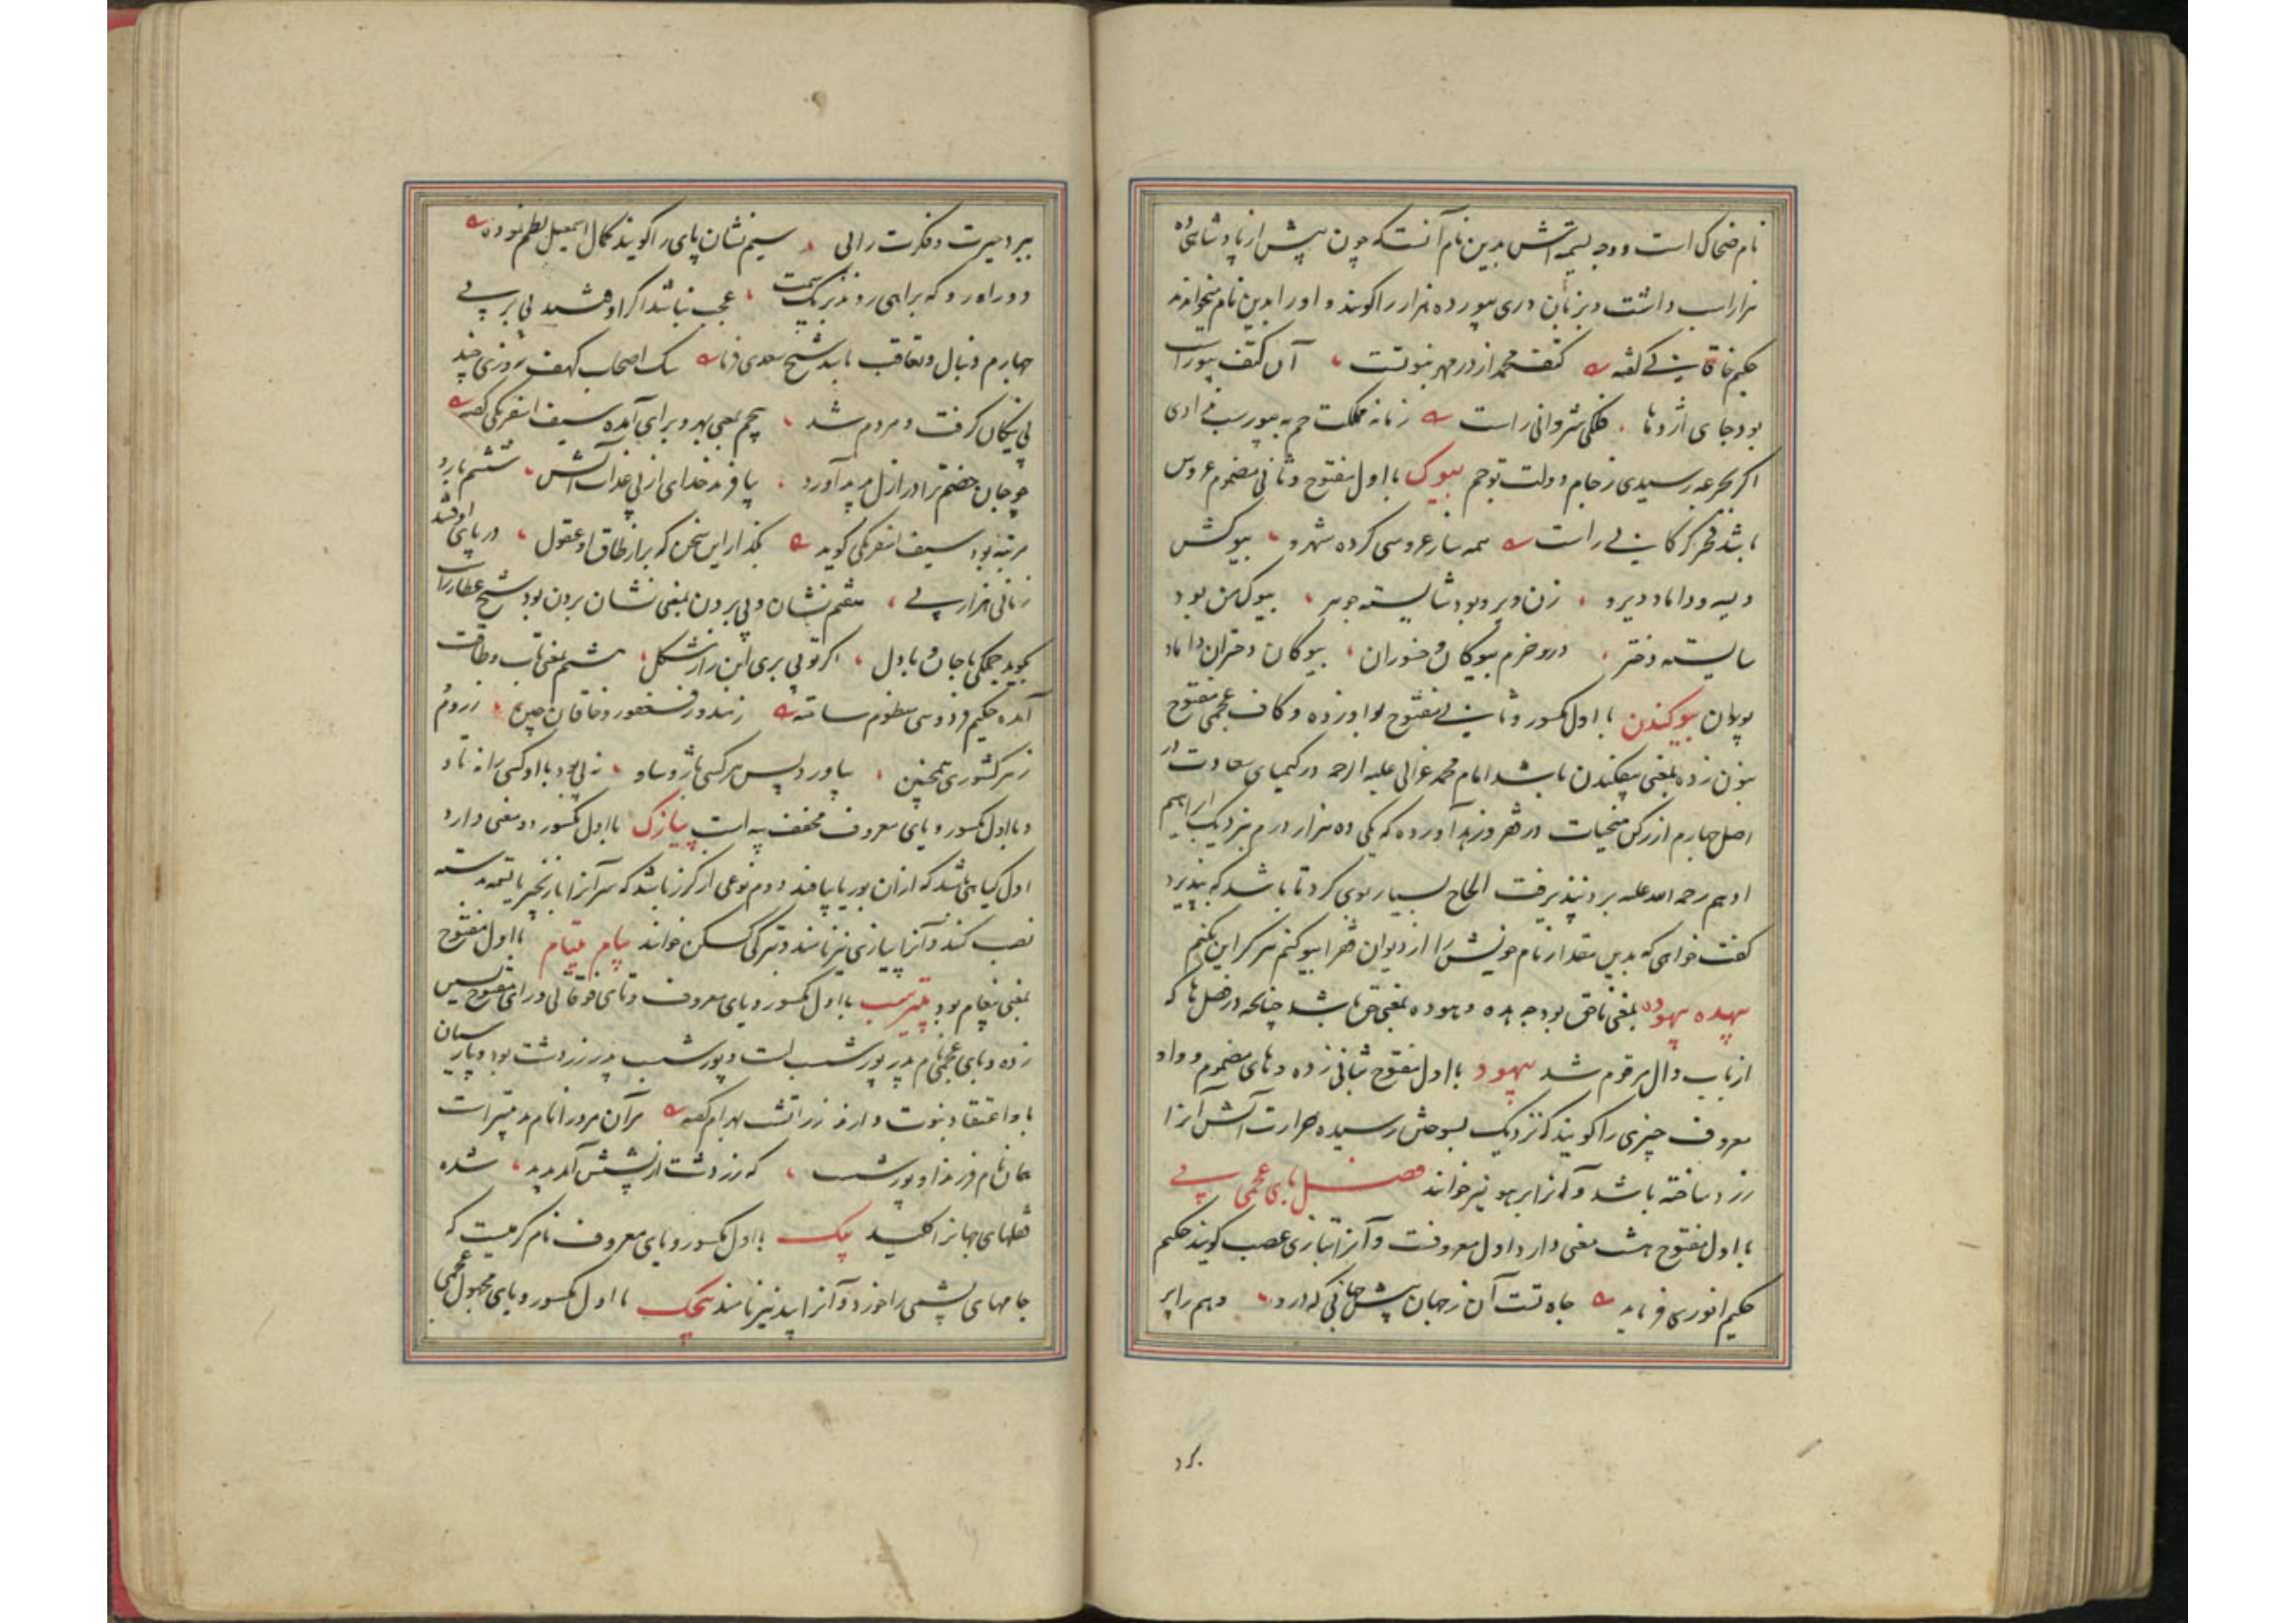 نام ضحاک است و وجه تسمیه اش بدین نام آنست که چون پیش از پادشاهی ده
هزار اسب داشت و بزبان دری بیور ده هزار را گویند و او را بدین نام میخواندند
حکیم خاقانی گفته کتف محمد از در مهر نبوتست آن کتف بیوراست
بود جای اژدها فلکی شروانی راست ز مانه مملکت جم به بیورسب نداد ی
اگر بجرعه رسیدی ز جام دولت تو جم بیوک با اول مفتوح و ثانی مضموم عروس
باشد فخر گرگانی راست همه ساز عروسی کرده شهرو بیوکش
ویسه و داماد ویرو زن ویرو بود شایسته خواهر بیوک من بود
بایسته دختر درو خرم بیوکان و خسوران بیوکان دختران داماد
پوران بیوکندن با اول مکسور و ثانی مفتوح بواو زده و کاف عجمی مفتوح
بنون زده بمعنی بیفکندن باشد امام محمد غزالی علیه الرحمه در کیمیای سعادت در
اصل چهارم از رکن منجیات در فقر و زهد آورده که یکی ده هزار درم بنزدیک ابراهیم
ادهم رحمه الله علیه برد نپذیرفت الحاح بسیار بوی کرد تا باشد که بپذیرد
گفت خواهی که بدین مقدار نام خویش را از دیوان فقرا بیوکنم هرگز این نکنم
بیهده بیهوده بمعنی ناحق بود چه هده و هوده بمعنی حق باشد چنانچه در فصل ها که
از باب دال مرقوم شد بیهود با اول مفتوح بثانی زده و های مضموم و واو
معروف چیزی را گویند که نزدیک بسوختن رسیده حرارت آتش آنرا
زرد ساخته باشد و آنرا برهو نیز خوانند فصل بای عجمی پی
با اول مفتوح هشت معنی دارد اول معروفست و آنرا بتازی عصب گویند حکیم
حکیم انوری فرماید جاه تست آن ز جهان پیش جهانی که درو وهم را پر
برد
ببرد حیرت و فکرت را پی سیم نشان پای را گویند کمال اسمعیل نظم نموده
دو راه رو که براهی روند بر یک سمت عجب نباشد اگر اوفتند پی بر پی
چهارم دنبال و تعاقب باشد شیخ سعدی فرماید سک اصحاب کهف روزی چند
پی نیکان گرفت و مردم شد پنجم بمعنی بهر و برای آمده سیف اسفرنگی گفته
چو جان خصم ترا در ازل پدید آورد بیافرید خدای از پی عذاب آتش ششم بار و
مرتبه بود سیف اسفرنگی گوید بگذار این سخن که بر از طاق او عقول در پای اوفتند
زمانی هزار پی هفتم نشان و پی بردن بمعنی نشان بردن بود شیخ عطار راست
بگوید جمکی با جان و با دل اگر تو پی بری این راز مشکل هشتم بمعنی تاب و طاقت
آمده حکیم فردوسی منظوم ساخته ز هند و ز فغفور و خاقان چین ز روم و
ز هر کشوری همچنین بیاورد پس هر کسی باژ و ساو نه پی بود با او کسی را نه تاو
و با اول مکسور و یای معروف مخفف پیه است پیازک با اول مکسور دو معنی دارد
اول گیاهی باشد که از آن بوریا بافند دوم نوعی از گرز باشد که سر آنرا با زنجیر یا تسمه بدسته
نصب کنند و آنرا پیازی نیز نامند و بترکی کسکن خوانند پیام پیتام با اول مفتوح
بمعنی پیغام بود پیترسب با اول مکسور و یای معروف و تای فوقانی و رای مفتوح بسین
زده و بای عجمی نام پدر پورشسب است و پورشسب پدر زردشت بود و پارسیان
باو اعتقاد نبوت دارند زراتشت بهرام گفته مر آن مرد را نام بد پیترسب
همان نام فرزند او پورشسب که زردشت از پشتش آمد پدید شده
قفلهای جهانرا کلید پیک با اول مکسور و یای معروف نام کرمیست که
جامهای پشمین را خورد و آنرا بید نیز نامند پیچک با اول مکسور و یای مجهول عجمی